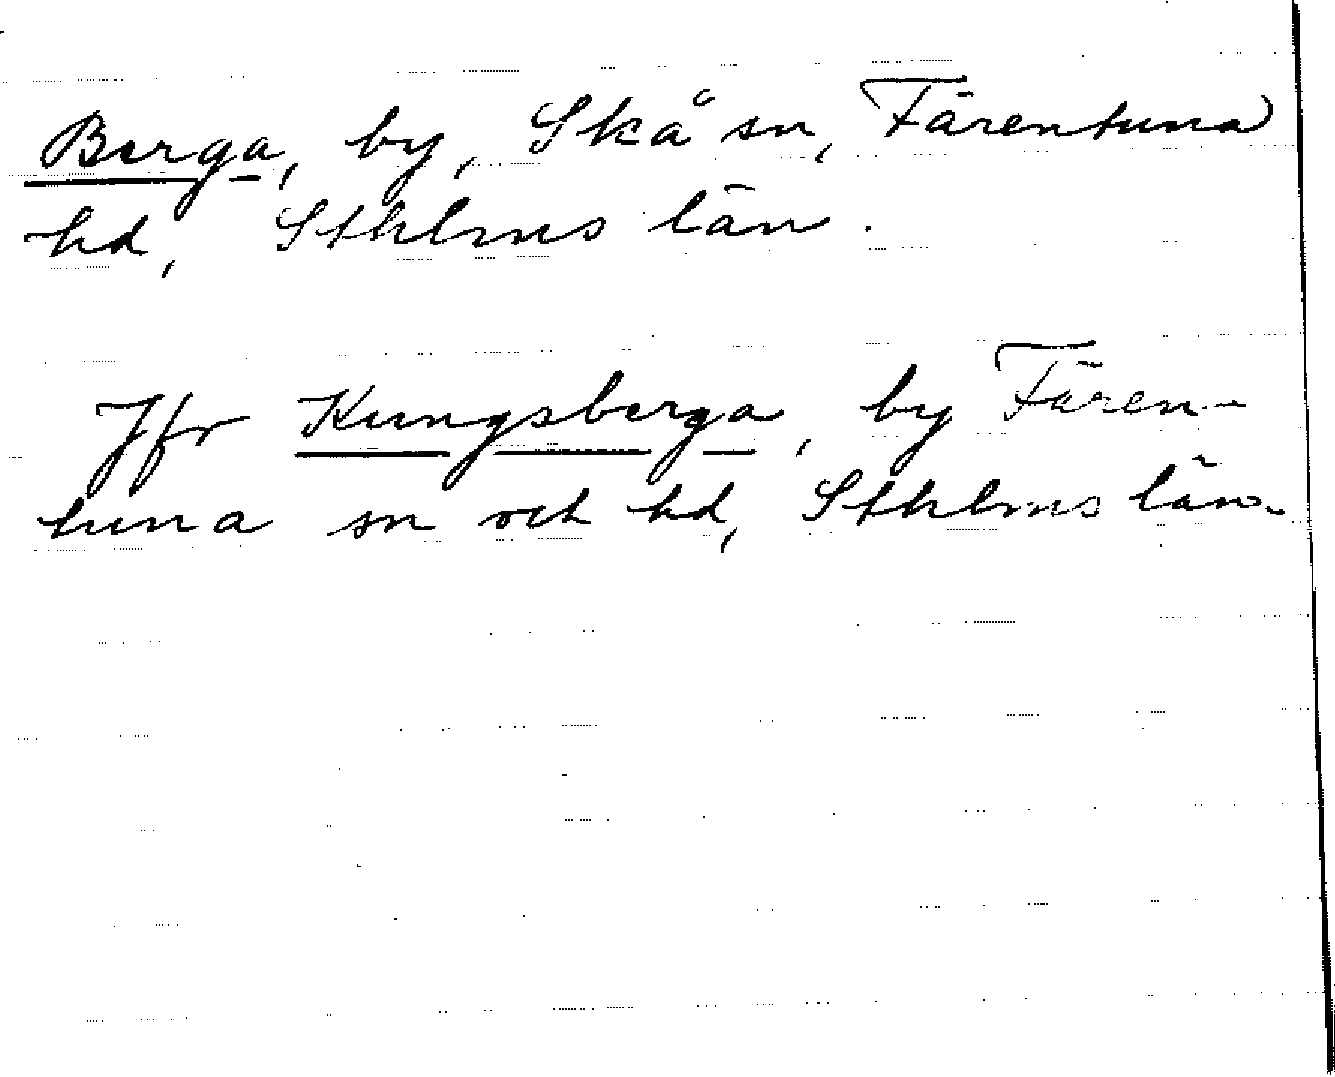 Berga, by, Skå sn, Färentuna
hd, Sthlms län.
Jfr Kungsberga, by Fären-
tuna sn och hd, Sthlms län.